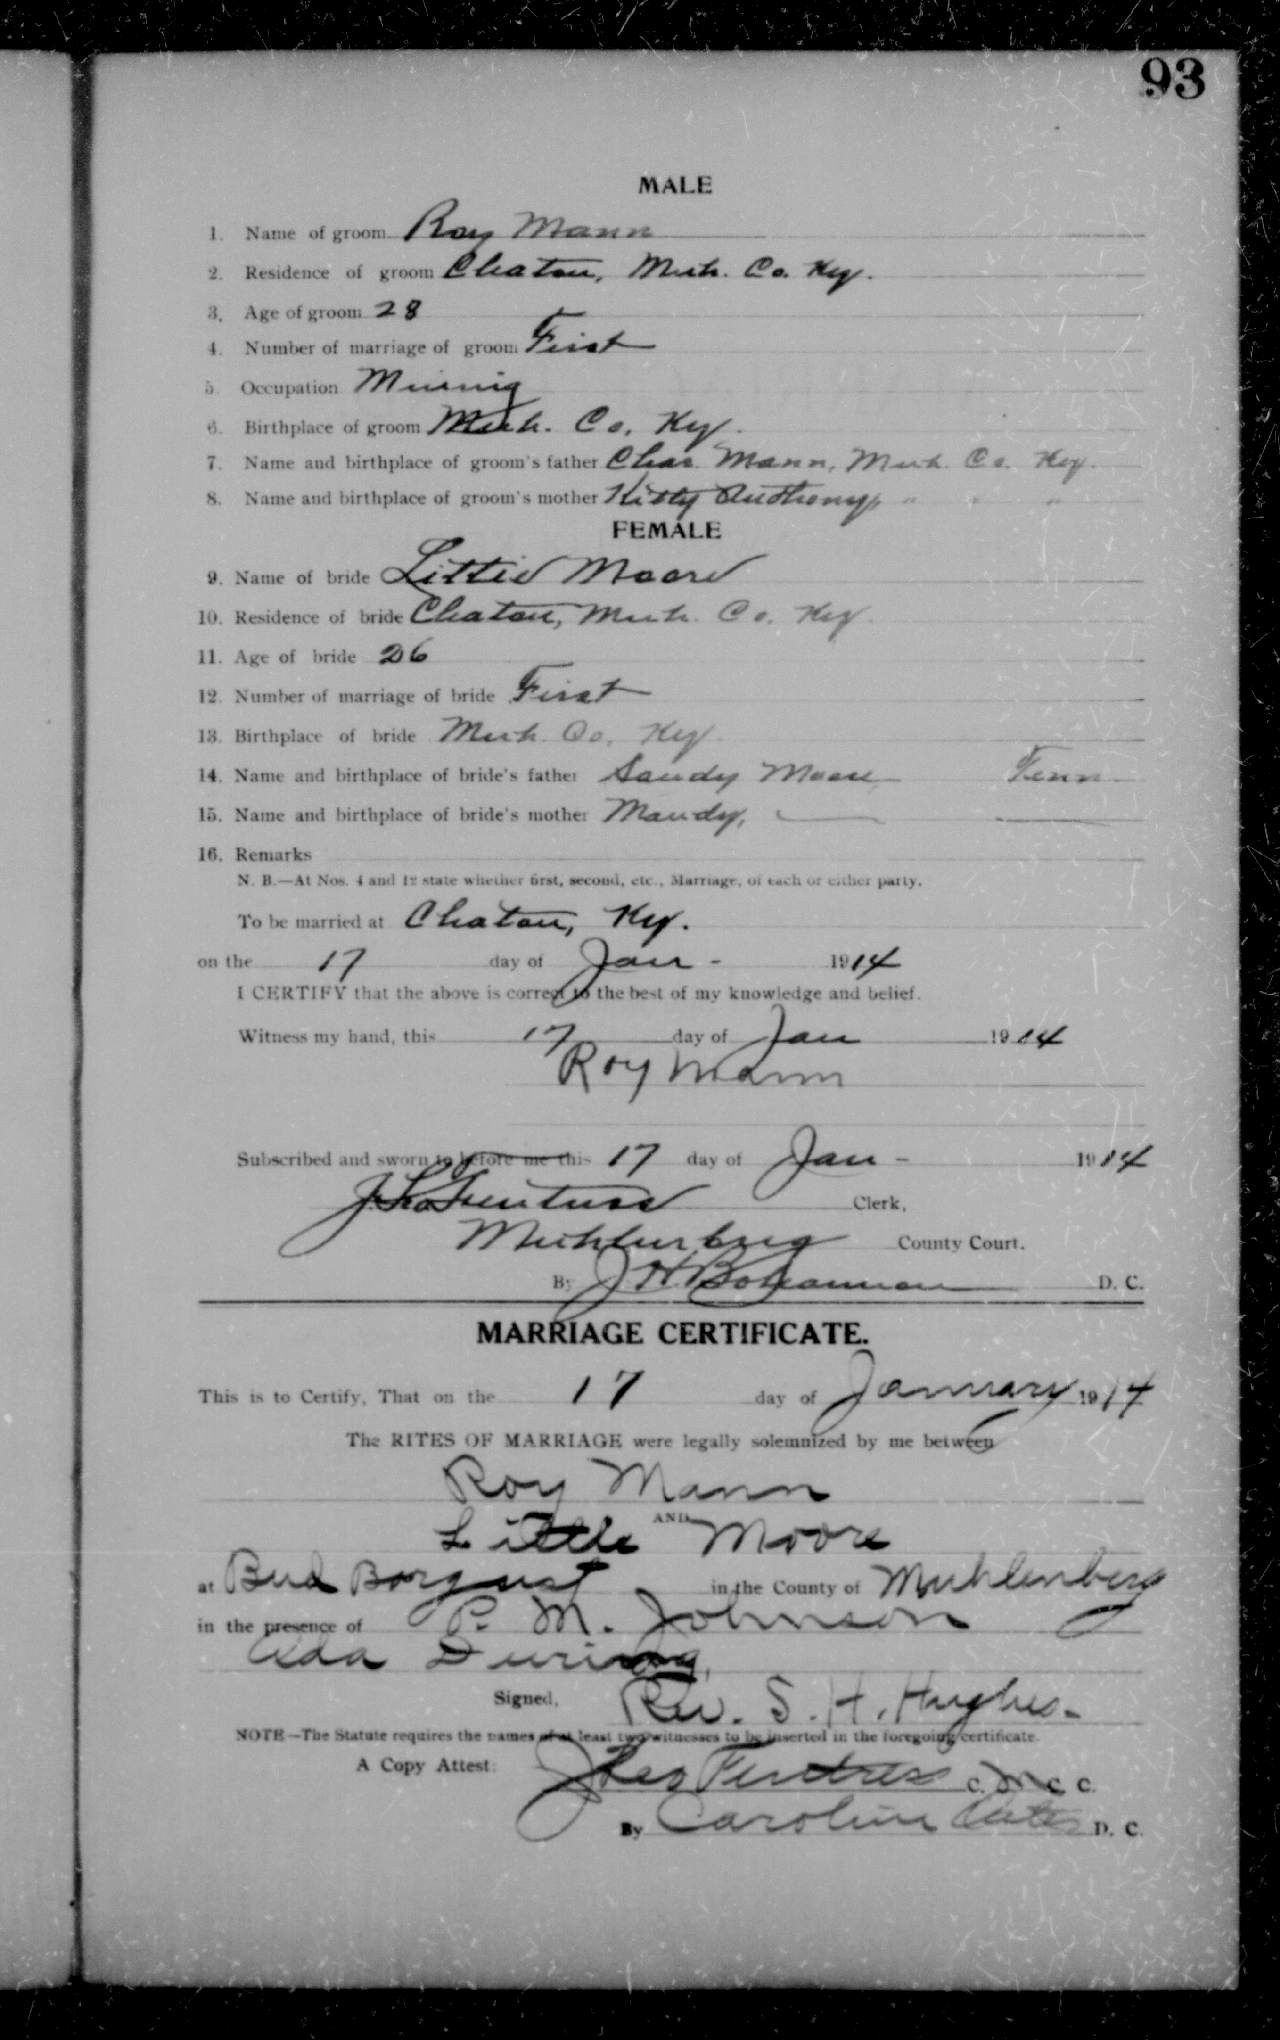 93
MALE
1. Name of groom Roy Mann
2. Residence of groom Cleaton, Muh. Co. Ky.
3. Age of groom 28
4. Number of marriage of groom First
5. Occupation Mining
6. Birthplace of groom Muh. Co. Ky.
7. Name and birthplace of groom's father Chas. Mann, Muh. Co. Ky.
8. Name and birthplace of groom's mother Kitty Anthony, " " "
FEMALE
9. Name of bride Littie Moore
10. Residence of bride Cleaton, Muh. Co. Ky
11. Age of bride 26
12. Number of marriage of bride First
13. Birthplace of bride Muh. Co. Ky.
14. Name and birthplace of bride's father Sandy Moore Tenn
15. Name and birthplace of bride's mother Mandy,
16. Remarks
N. B.—At Nos. 4 and 12 state whether first, second, etc., Marriage, of each or either party.
To be married at Cleaton, Ky.
on the 17 day of Jan - 1914
I CERTIFY that the above is correct to the best of my knowledge and belief.
Witness my hand, this 17 day of Jan 1914
Roy Mann
Subscribed and sworn to before me this 17 day of Jan - 1914
Clerk,
Muhlenberg County Court.
By J H Bohannon D. C.
MARRIAGE CERTIFICATE.
This is to Certify, That on the 17 day of January 1914
The RITES OF MARRIAGE were legally solemnized by me between
Roy Mann
AND
Little Moore
at Bud in the County of Muhlenberg
in the presence of P. M. Johnson
Ada
Signed, Rev. S. H. Hughes.
NOTE—The Statute requires the names of at least two witnesses to be inserted in the foregoing certificate.
A Copy Attest: C. M C. C.
By Caroline Oates D. C.